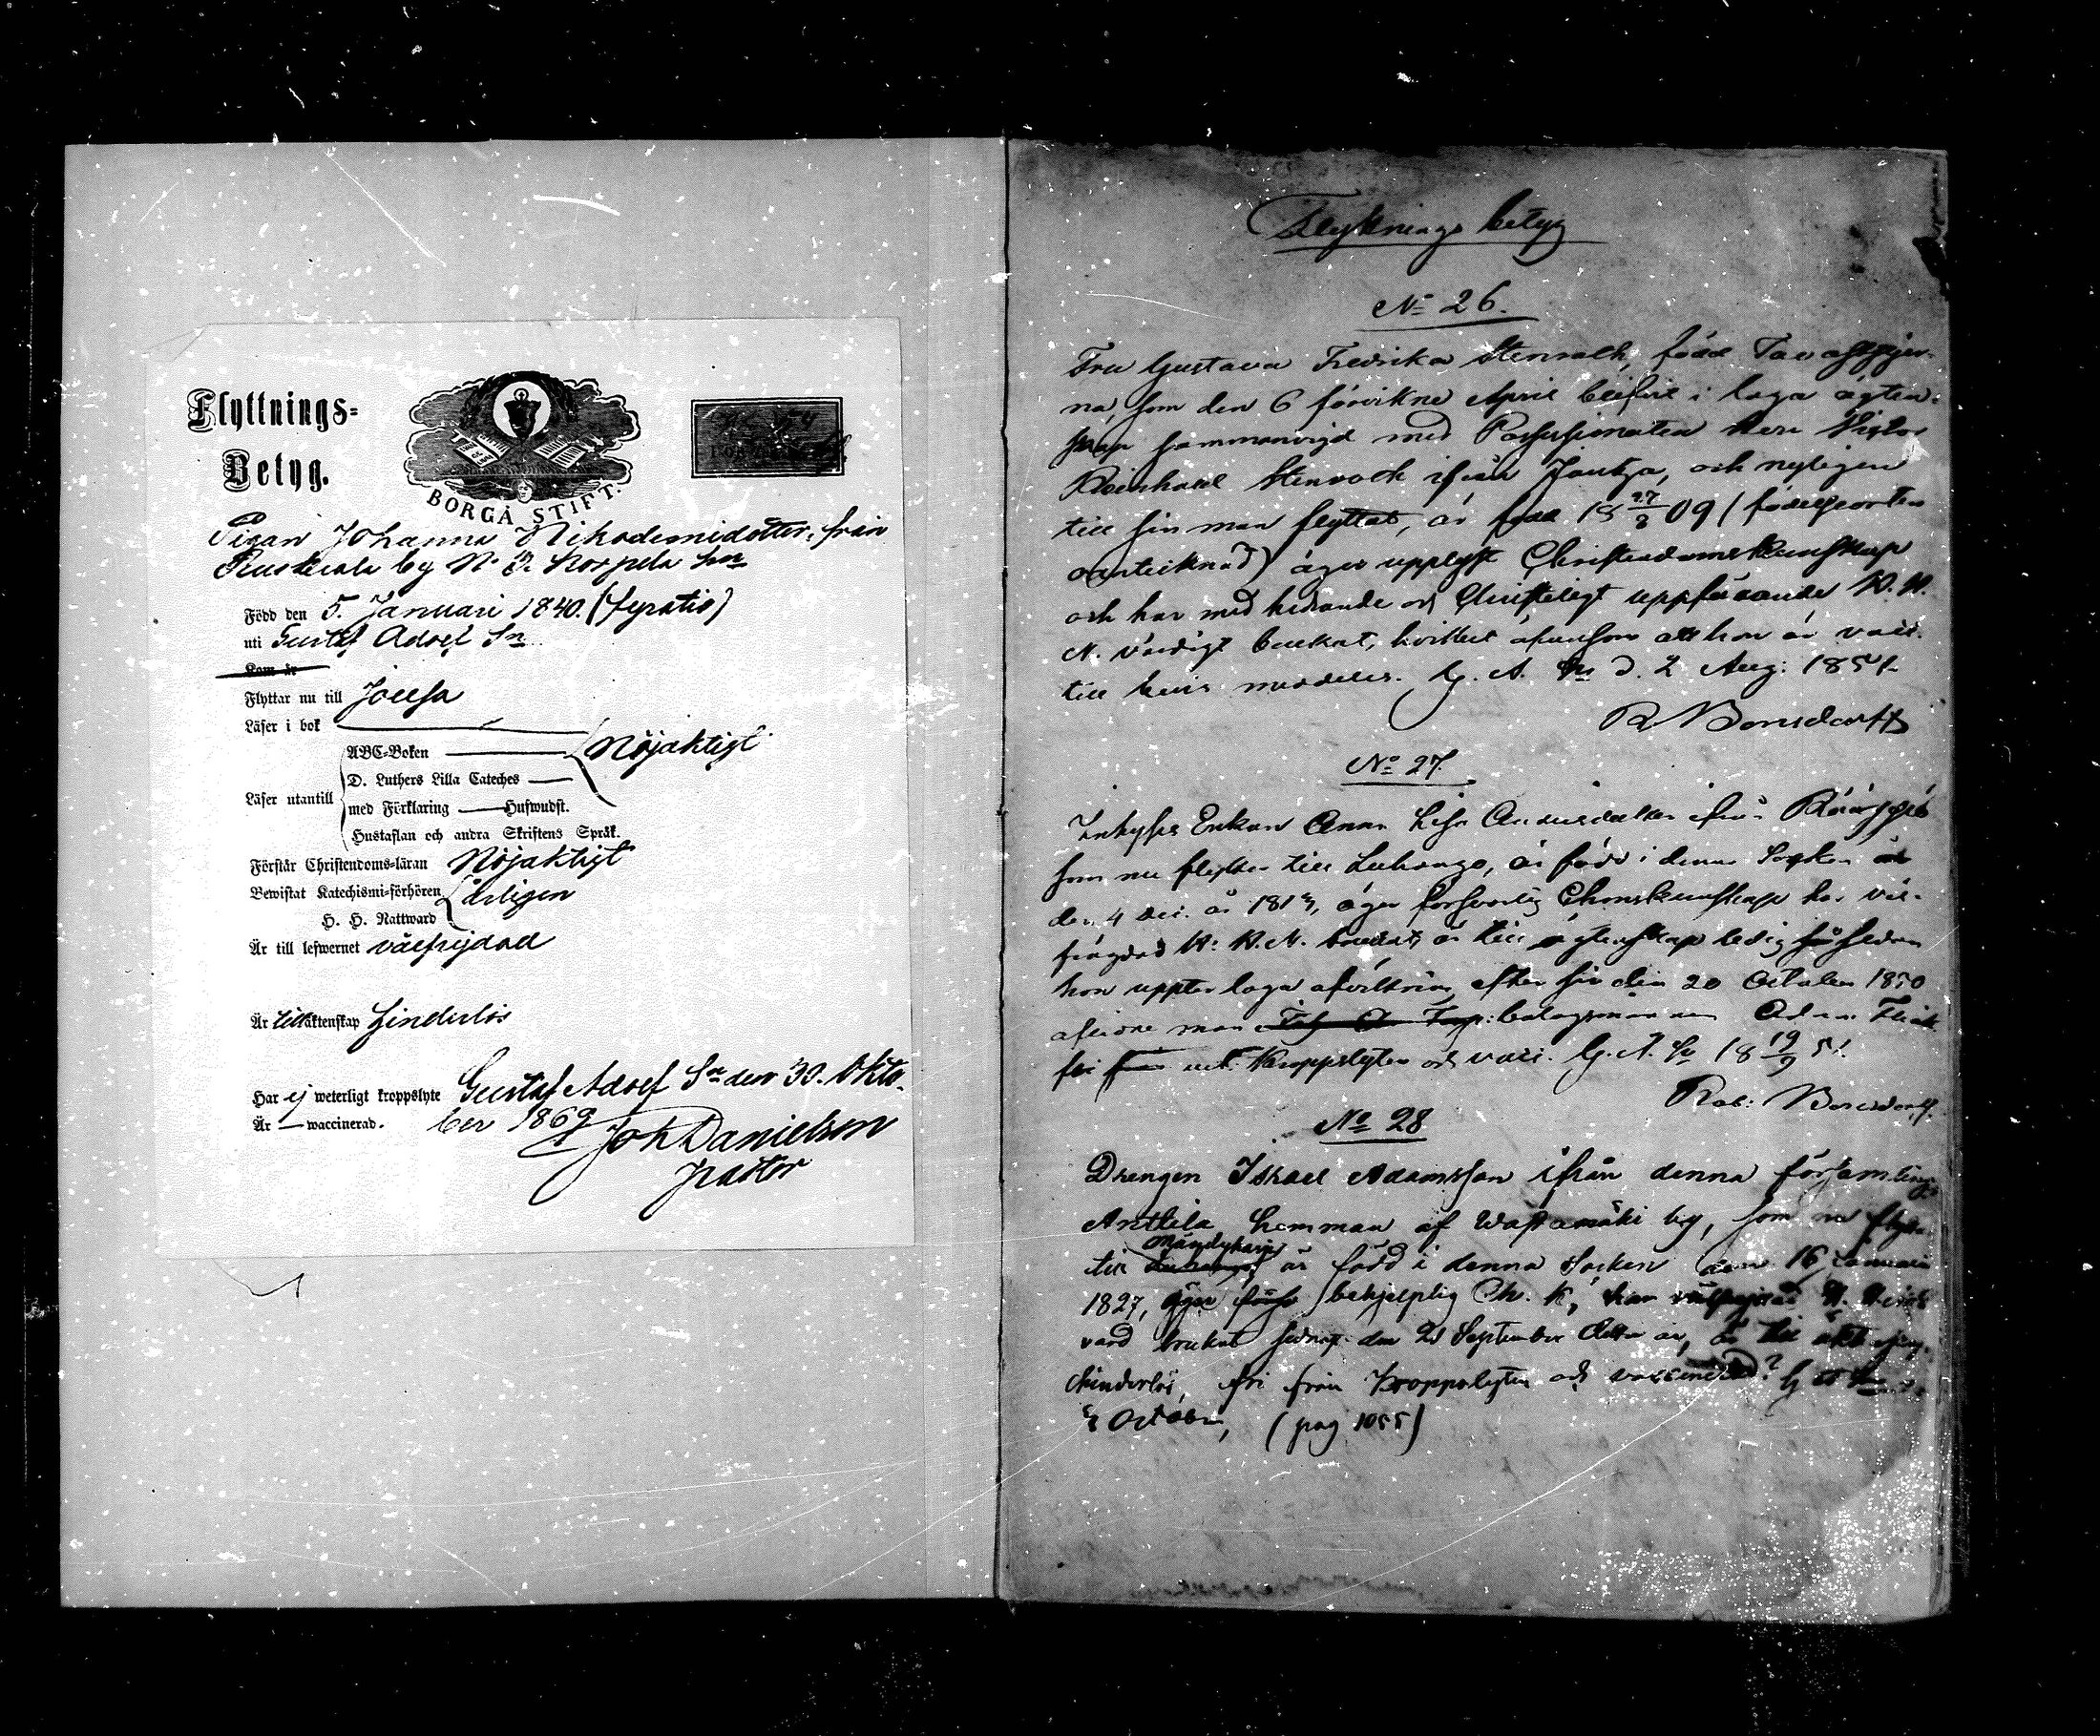 Flyttnings-
Betyg.
BORGÅ STIFT.
Pigan Johanna Nikodemidotter, från
by N. 3. Korpela hn
Född den 5. Januari 1840. (fyratio)
uti Gustaf Adolf Sn
Kom år
Flyttar nu till Joutsa
Läser i bok
ABC-Boken
Nöjaktigt
D. Luthers Lilla Cateches
Läser utantill
med Förklaring Hufwudst.
Hustaflan och andra Skriftens Språk.
Förstår Christendoms-läran Nöjaktigt
Bewistat Katechismi-förhören årligen
H. H. Nattward
Är till lefwernet välfrejdad
Är till äktenskap hinderlös
Har ej weterligt kroppslyte Gustaf Adolf Sn den 30. Okto-
Är — waccinerad. ber 1869
Joh Danielson
pastor
Flyttnings betyg
No 26.
Fru Gustava Fredrika Stenvall, född Tavaststjer-
na, som den 6 förvikne April blifvit i laga ägten-
skap sammanvigd med Possessionaten Herr Victor
Reinhold ifrån Joutsa, och nyligen
till sin man flyttat, är född 18 27/8 09 (födelseorten
oantecknad) äger upplyst Christendomskunskap
och har med hedrande och Christeligt uppförande H. H.
N. värdigt brukat, hvilket äfvensom att hon är vacc.
till bevis meddeles. G. A. Sn d. 2 Aug: 1851.
R Bonsdorff
No 27.
Inhyses Enkan Anna Lisa Andersdotter ifrån
som nu flyttar till Luhango, är född i denna Socken
den 4 Dec. år äger försvarlig Chmskunskap har väl-
frägdad H. H. N. brukat, är till ägtenskap ledig sedan
hon uppter laga afvittring efter sin den 20 October 1850
aflidne man Adam
fri från vet. Kroppslyten och vacc. G. A. Sn 18 19/9 51.
Rob: Bonsdorff.
No 28
Drengen Israel Adamsson ifrån denna församlings
Anttila hemman af Wastamäki by, som nu flyttar
Mändyharju
till är född i denna Socken den 16 Januari
1827, äger behjelplig Ch. K, har välfrejdad H.
vard brukat sednast den 21 September detta år, är till
hinderlös, fri från Kroppslyten och vaccinerad? G A Sn
October, (pag 1055)